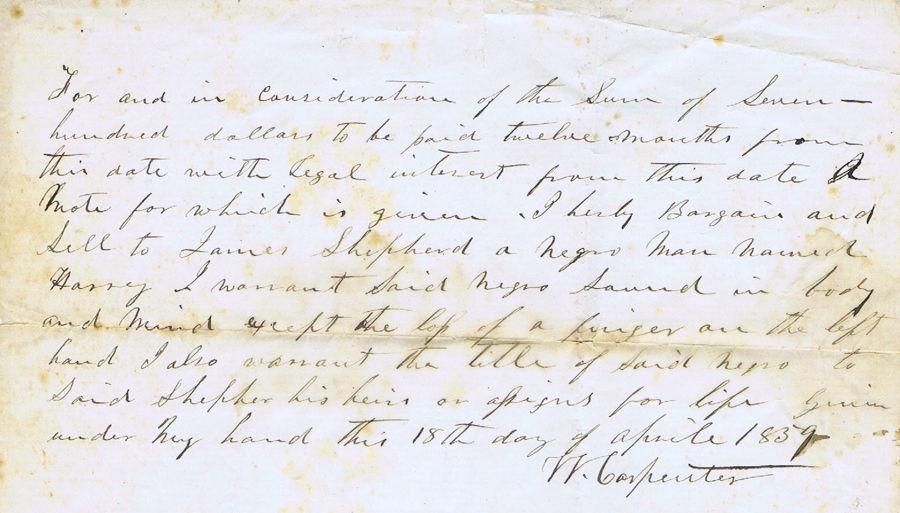 For and in consideration of the Sum of Seven—
hundred dollars to be paid twelve months from
this date with legal interest from this date A
Note for which is given. I herby Bargain and
Sell to James Shepherd a negro Man named
Harrey I warrant Said Negro Sound in body
and Mind except the loss of a finger on the left
hand I also warrant the title of said Negro to
Said Shepher his heirs or assigns for life given
under My hand this 18th day of aprile 1859
W. Carpenter